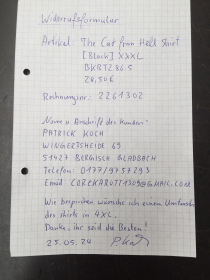 Widerrufsformular
Artikel: The Cat from Hell Shirt
[Black] XXXL
BKBTZ86.S
28,50€
Rechnungsnr: 2261302
Name & Anschrift des Kunden:
PATRICK KOCH
WINGERTSHEIDE 69
51427 BERGISCH GLADBACH
Telefon: 0177/9757293
Email
Wie besprochen wünsche ich einen Umtausch
des Shirts in 4XL.
Danke, ihr seid die Besten!
25.05.24 P.Koch